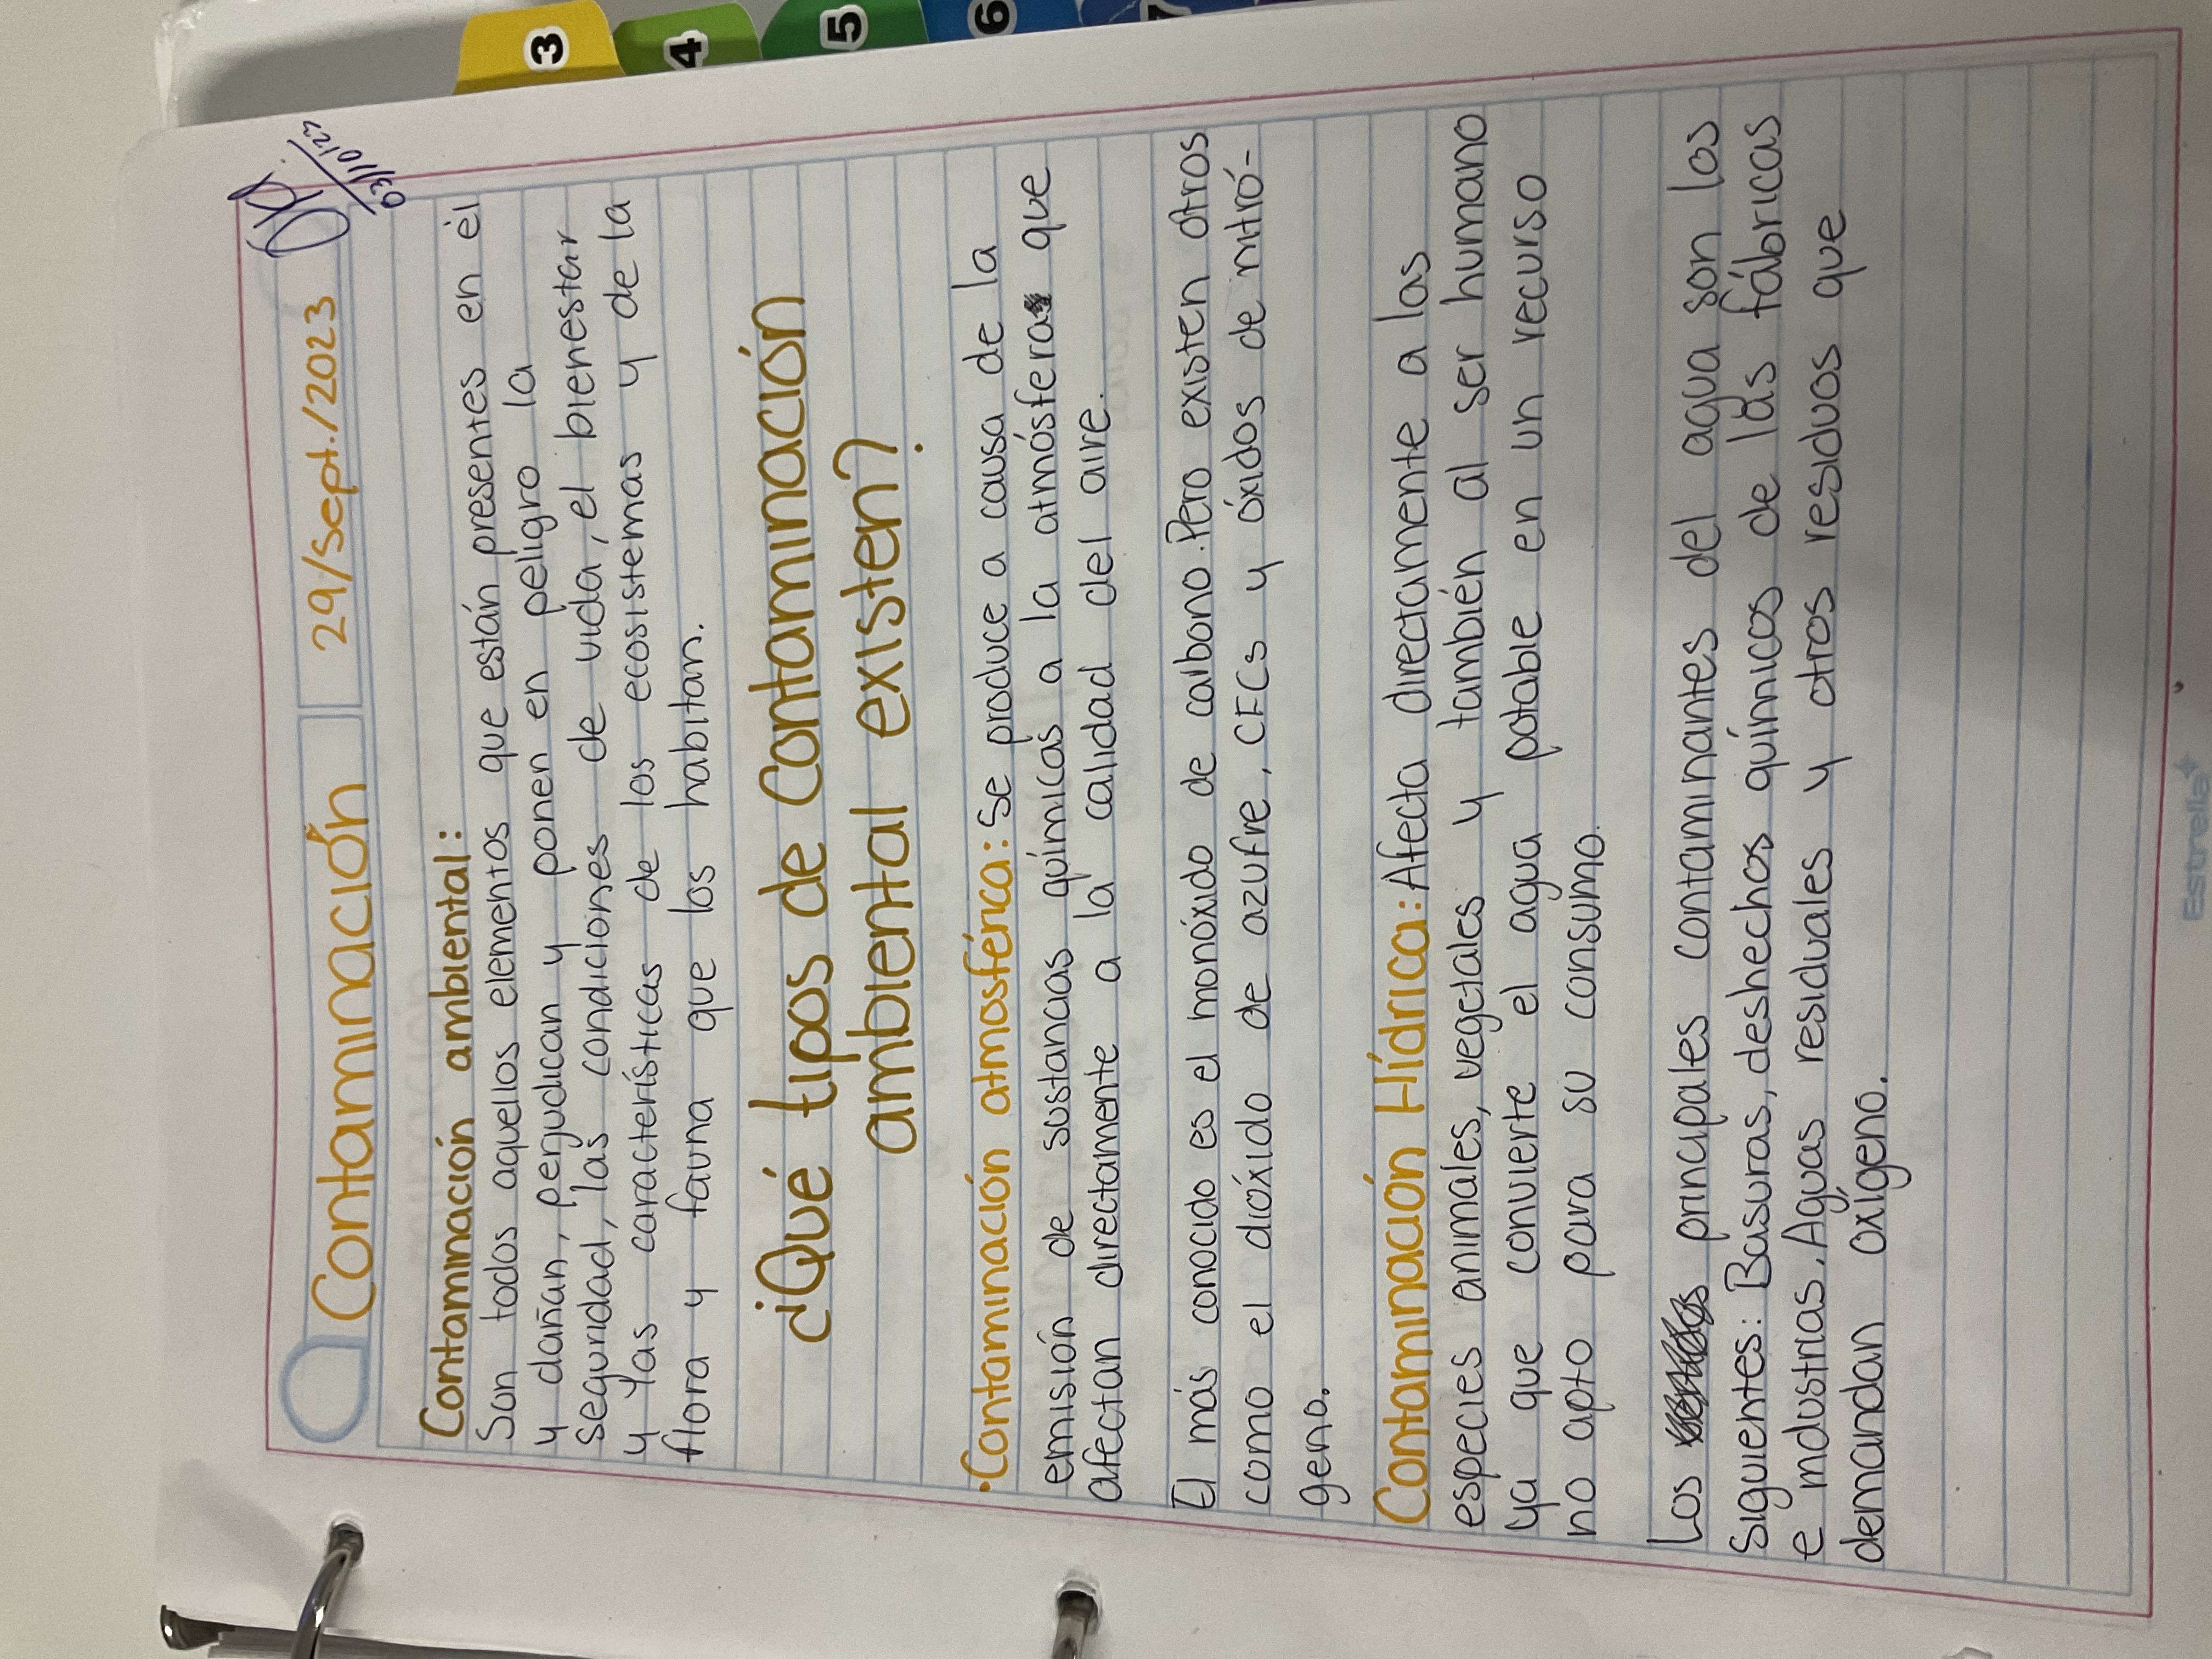 3
4
5
6
7
03/10/23
Contaminación 29/Sept./2023
Contaminación ambiental:
Son todos aquellos elementos que están presentes en él
y dañan, perjudican y ponen en peligro la
seguridad, las condiciones de vida, el bienestar
y las características de los ecosistemas y de la
flora y fauna que los habitan.
¿Qué tipos de Contaminación
ambiental existen?
·Contaminación atmosférica: Se produce a causa de la
emisión de sustancias químicas a la atmósfera que
afectan directamente a la calidad del aire.
El más conocido es el monóxido de carbono. Pero existen otros
como el dióxido de azufre, CFCs y óxidos de nitró-
geno.
Contaminación Hídrica: Afecta directamente a las
especies animales, vegetales y también al ser humano
ya que convierte el agua potable en un recurso
no apto para su consumo.
Los principales contaminantes del agua son los
Siguientes: Basuras, deshechos químicos de las fábricas
e industrias. Aguas residuales y otros residuos que
demandan oxígeno.
Estrella